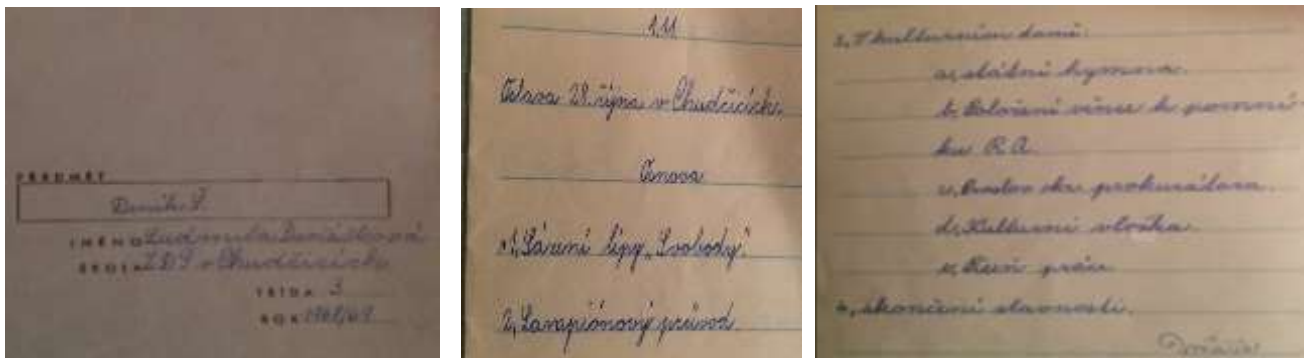 PŘEDMĚT
Deník Š.
JMÉNO Ludmila
ŠKOLA ZDŠ v Chudčicích
TŘÍDA 3
ROK 1968/69
1.11.
Oslava 28. října v Chudčicích.
Osnova
1, Sázení lípy „Svobody".
2, Lampiónový průvod
3, V kulturním domě.
a, státní hymna.
b, Položení věnce k pomní
ku R.A.
c, prokurátora.
d, Kulturní vložka.
e,
4, skončení slavnosti.